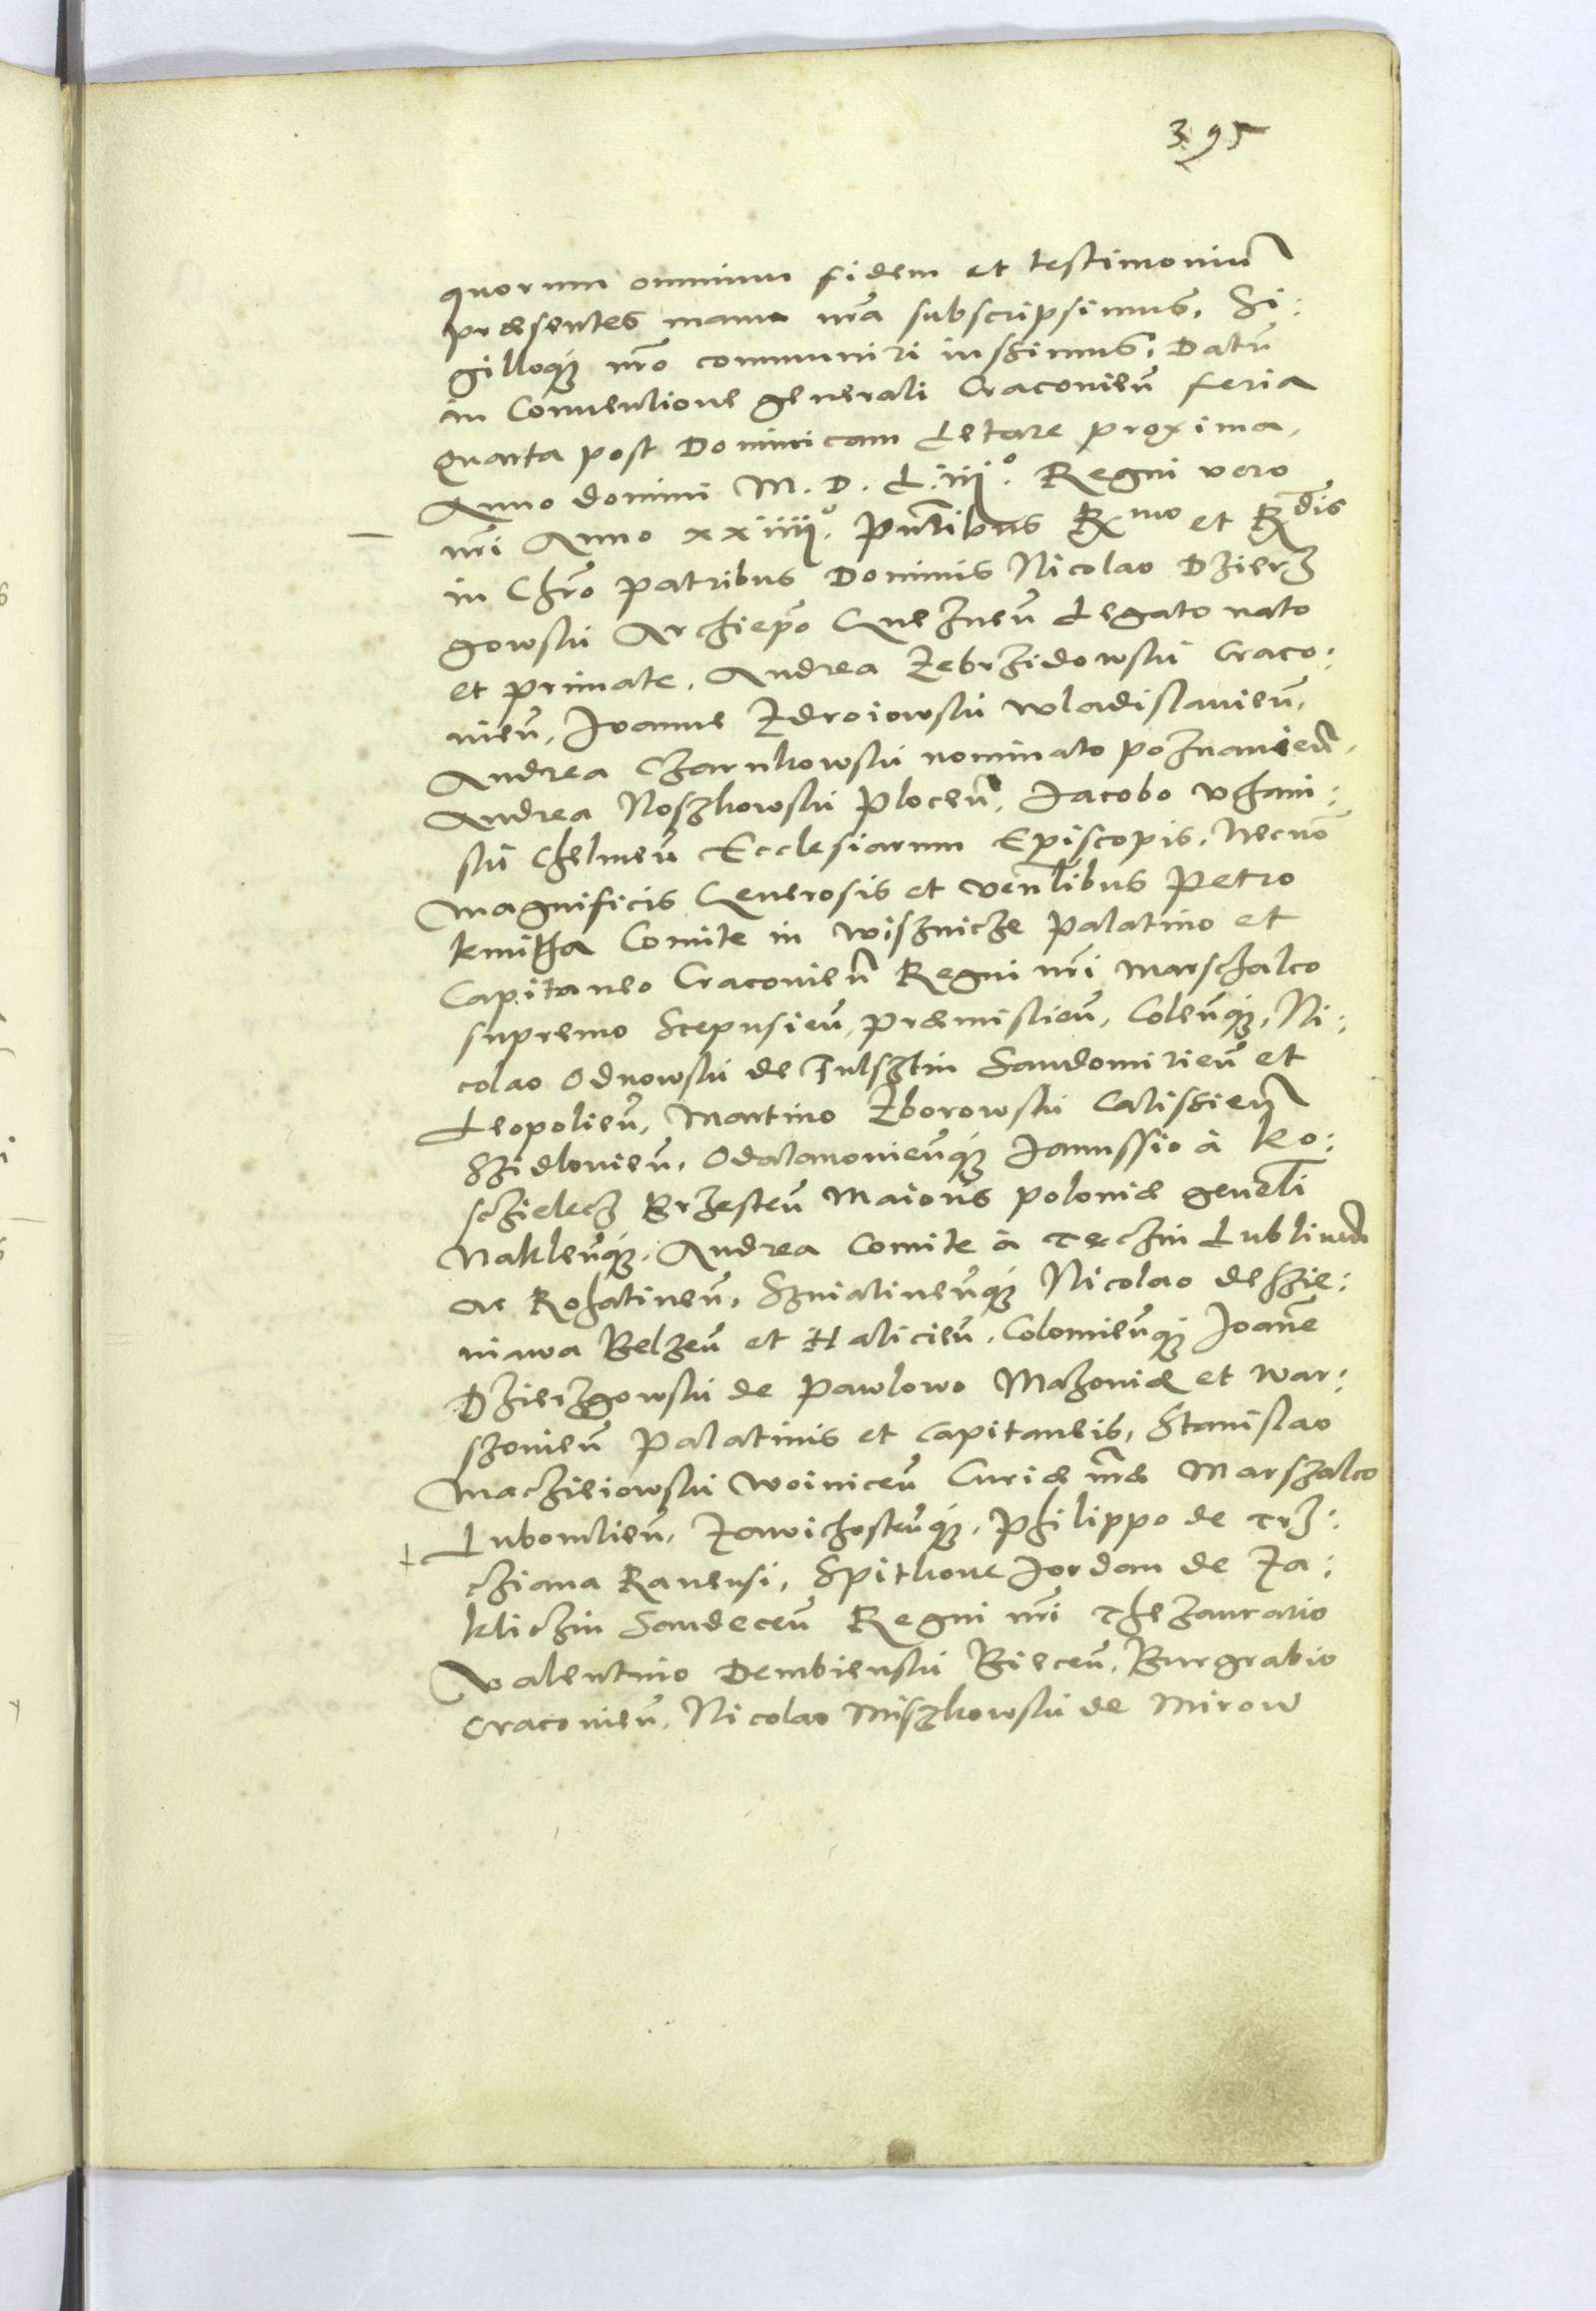 395
quorum omnium fidem et testimoniu͂
præsentes manu n͂ra subscripsimus, Si:
gilloq́ʒ n͂ro communiri iussimus. Datu͂
in Conuentione generali Cracouien͂ feria
quarta post Dominicam Letare proxima,
Anno domini M. D. L. iiij°. Regni vero
n͂ri Anno xxiiij°. Pn͂tibus Rmo et Rdis
in Chr͂o Patribus Dominis Nicolao Dzierz
gowski Archiep͂o Gneznen͂ Legato nato
et primate. Andrea Zebrzidowski Craco:
uien͂, Joanne Zdroiowski Wladislauien͂,
Andrea Czarnkowski nominato poznanien͂,
Andrea Noszkowski Plocen͂, Jacobo Vchani:
ski Chelmen͂ Ecclesiarum Episcopis. Necno͂
Magnificis Generosis et ven͂libus Petro
kmitha Comite in Wisznicze Palatino et
Capitaneo Cracouien͂ Regni n͂ri Marschalco
supremo Scepusien͂, Præmislien͂, Colen͂q́ʒ, Ni:
colao Odnowski de Fulsztin Sandomirien͂ et
Leopolien͂, Martino Zborowski Calissien͂
Szidlouien͂, Odalanouien͂q́ʒ Janussio à Ko:
sczielecz Brzesten͂ Maioris poloniæ gen͂eli
Naklen͂q́ʒ, Andrea Comite à Teczin Lublinen͂
ac Rohatinen͂, Szniatinen͂q́ʒ Nicolao de Szie:
niawa Belzen͂ et Halicien͂, Colomien͂q́ʒ Joan͂e
Dzierzgowski de Pawlowo Mazouiæ et War:
szouien͂ Palatinis et Capitaneis, Stanislao
Macziiowski Woinicen͂ Curiæ n͂ræ Marszalco
Lubomlien͂, Zawichosten͂q́ʒ, Philippo de Trz:
cziana Rauensi, Spitkone Jordan de Za:
kliczin Sandecen͂ Regni n͂ri Thezaurario
Valentino Dembienski Biecen͂, Burgrabio
Cracouien͂, Nicolao Miszkowski de Mirow